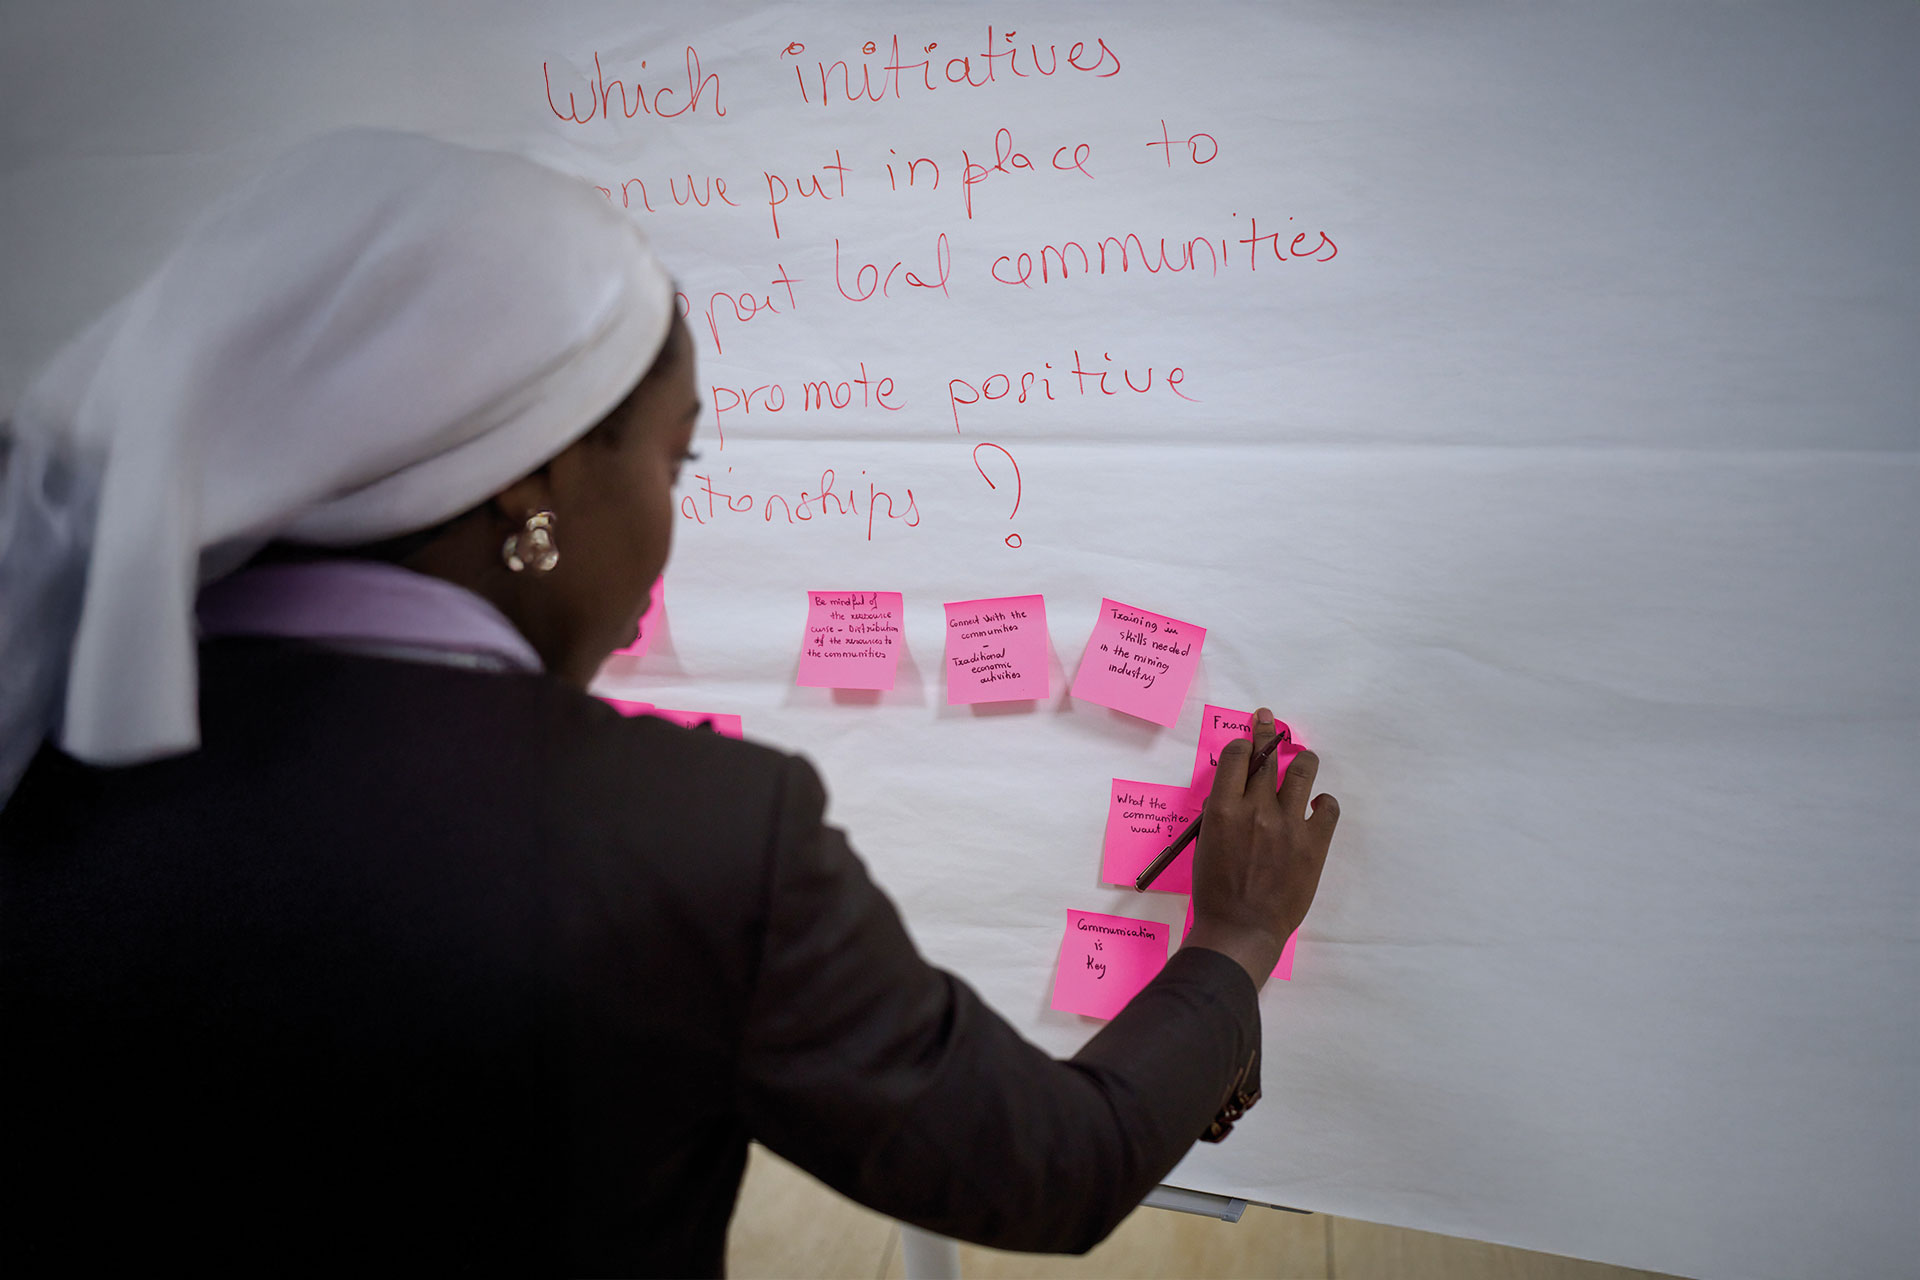 Which initiatives
we put in place to
local communities
promote positive
?
Be mindful of
the resource
curse - Distribution
of the resources to
the communities
Connect with the
communities
-
Traditional
economic
activities
Training in
skills needed
in the mining
industry
What the
communities
want?
Communication
is
Key